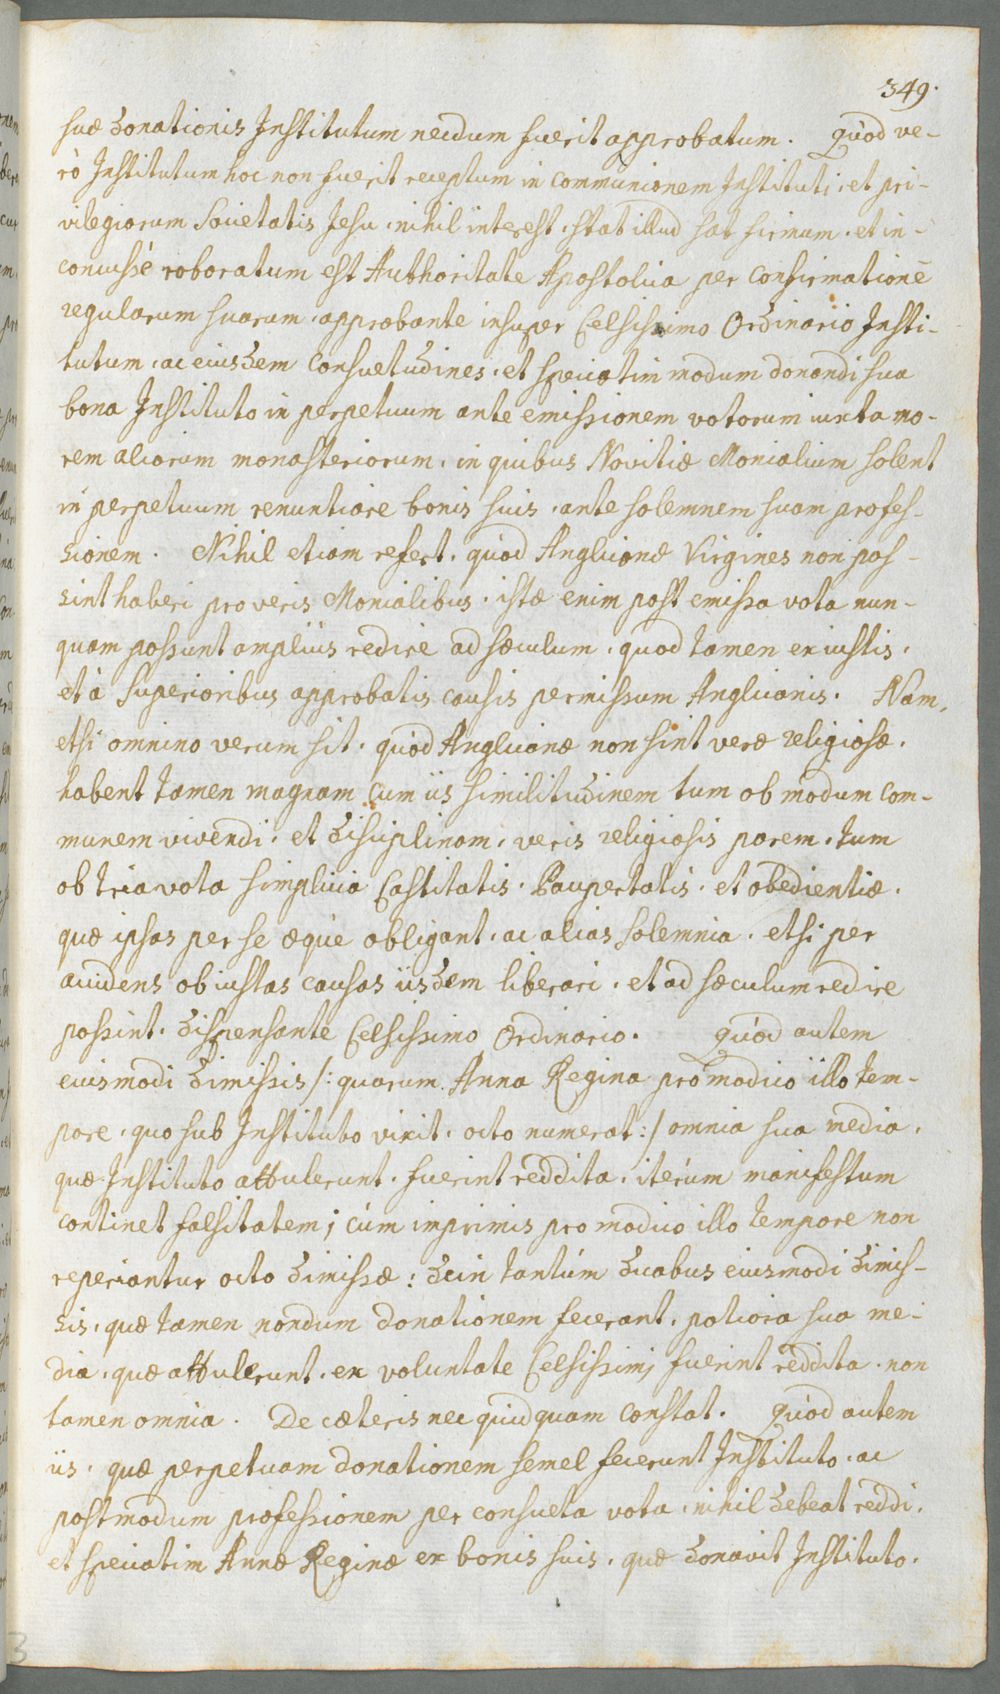 349.
suæ donationis Institutum necdum fuerit approbatum. Quòd ve-
rò Institutum hoc non fuerit receptum in communionem Instituti, et pri-
vilegiorum Societatis Jesu, nihil interest, stat illud sat firmum, et in-
concussè roboratum est Authoritate Apostolica per confirmationē
regularum suarum, approbante insuper Celsissimo Ordinario Insti-
tutum, ac eiusdem consuetudines, et speciatim modum donandi sua
bona Instituto in perpetuum ante emissionem votorum iuxta mo-
rem aliorum monasteriorum, in quibus Novitiæ Monialium solent
in perpetuum renuntiare bonis suis, ante solemnem suam profes-
sionem. Nihil etiam refert, quòd Anglicanæ Virgines non pos-
sint haberi pro veris Monialibus, istæ enim post emissa vota nun-
quam possunt ampliùs redire ad sæculum, quod tamen ex iustis,
et à Superioribus approbatis causis permissum Anglicanis. Nam,
etsi omnino verum sit, quòd Anglicanæ non sint veræ religiosæ,
habent tamen magnam cum iis similitudinem tum ob modum com-
munem vivendi, et disciplinam, veris religiosis parem, tum
ob tria vota simplicia Castitatis, Paupertatis, et obedientiæ,
quæ ipsas per se æquè obligant, ac alias solemnia, etsi per
accidens ob iustas causas iisdem liberari, et ad sæculum redire
possint, dispensante Celsissimo Ordinario. Quòd autem
eiusmodi dimissis /: quarum Anna Regina pro modico illo tem-
pore, quo sub Instituto vixit, octo numerat :/ omnia sua media,
quæ Instituto attulerunt, fuerint reddita, iterùm manifestum
continet falsitatem; cùm imprimis pro modico illo tempore non
reperiantur octo dimissæ: dein tantùm duabus eiusmodi dimis-
sis, quæ tamen nondum donationem fecerant, potiora sua me-
dia, quæ attulerunt, ex voluntate Celsissimi fuerint reddita, non
tamen omnia. De cæteris nec quidquam constat. Quòd autem
iis, quæ perpetuam donationem semel fecerunt Instituto, ac
postmodum professionem per consueta vota, nihil debeat reddi,
et speciatim Annæ Reginæ ex bonis suis, quæ donavit Instituto,